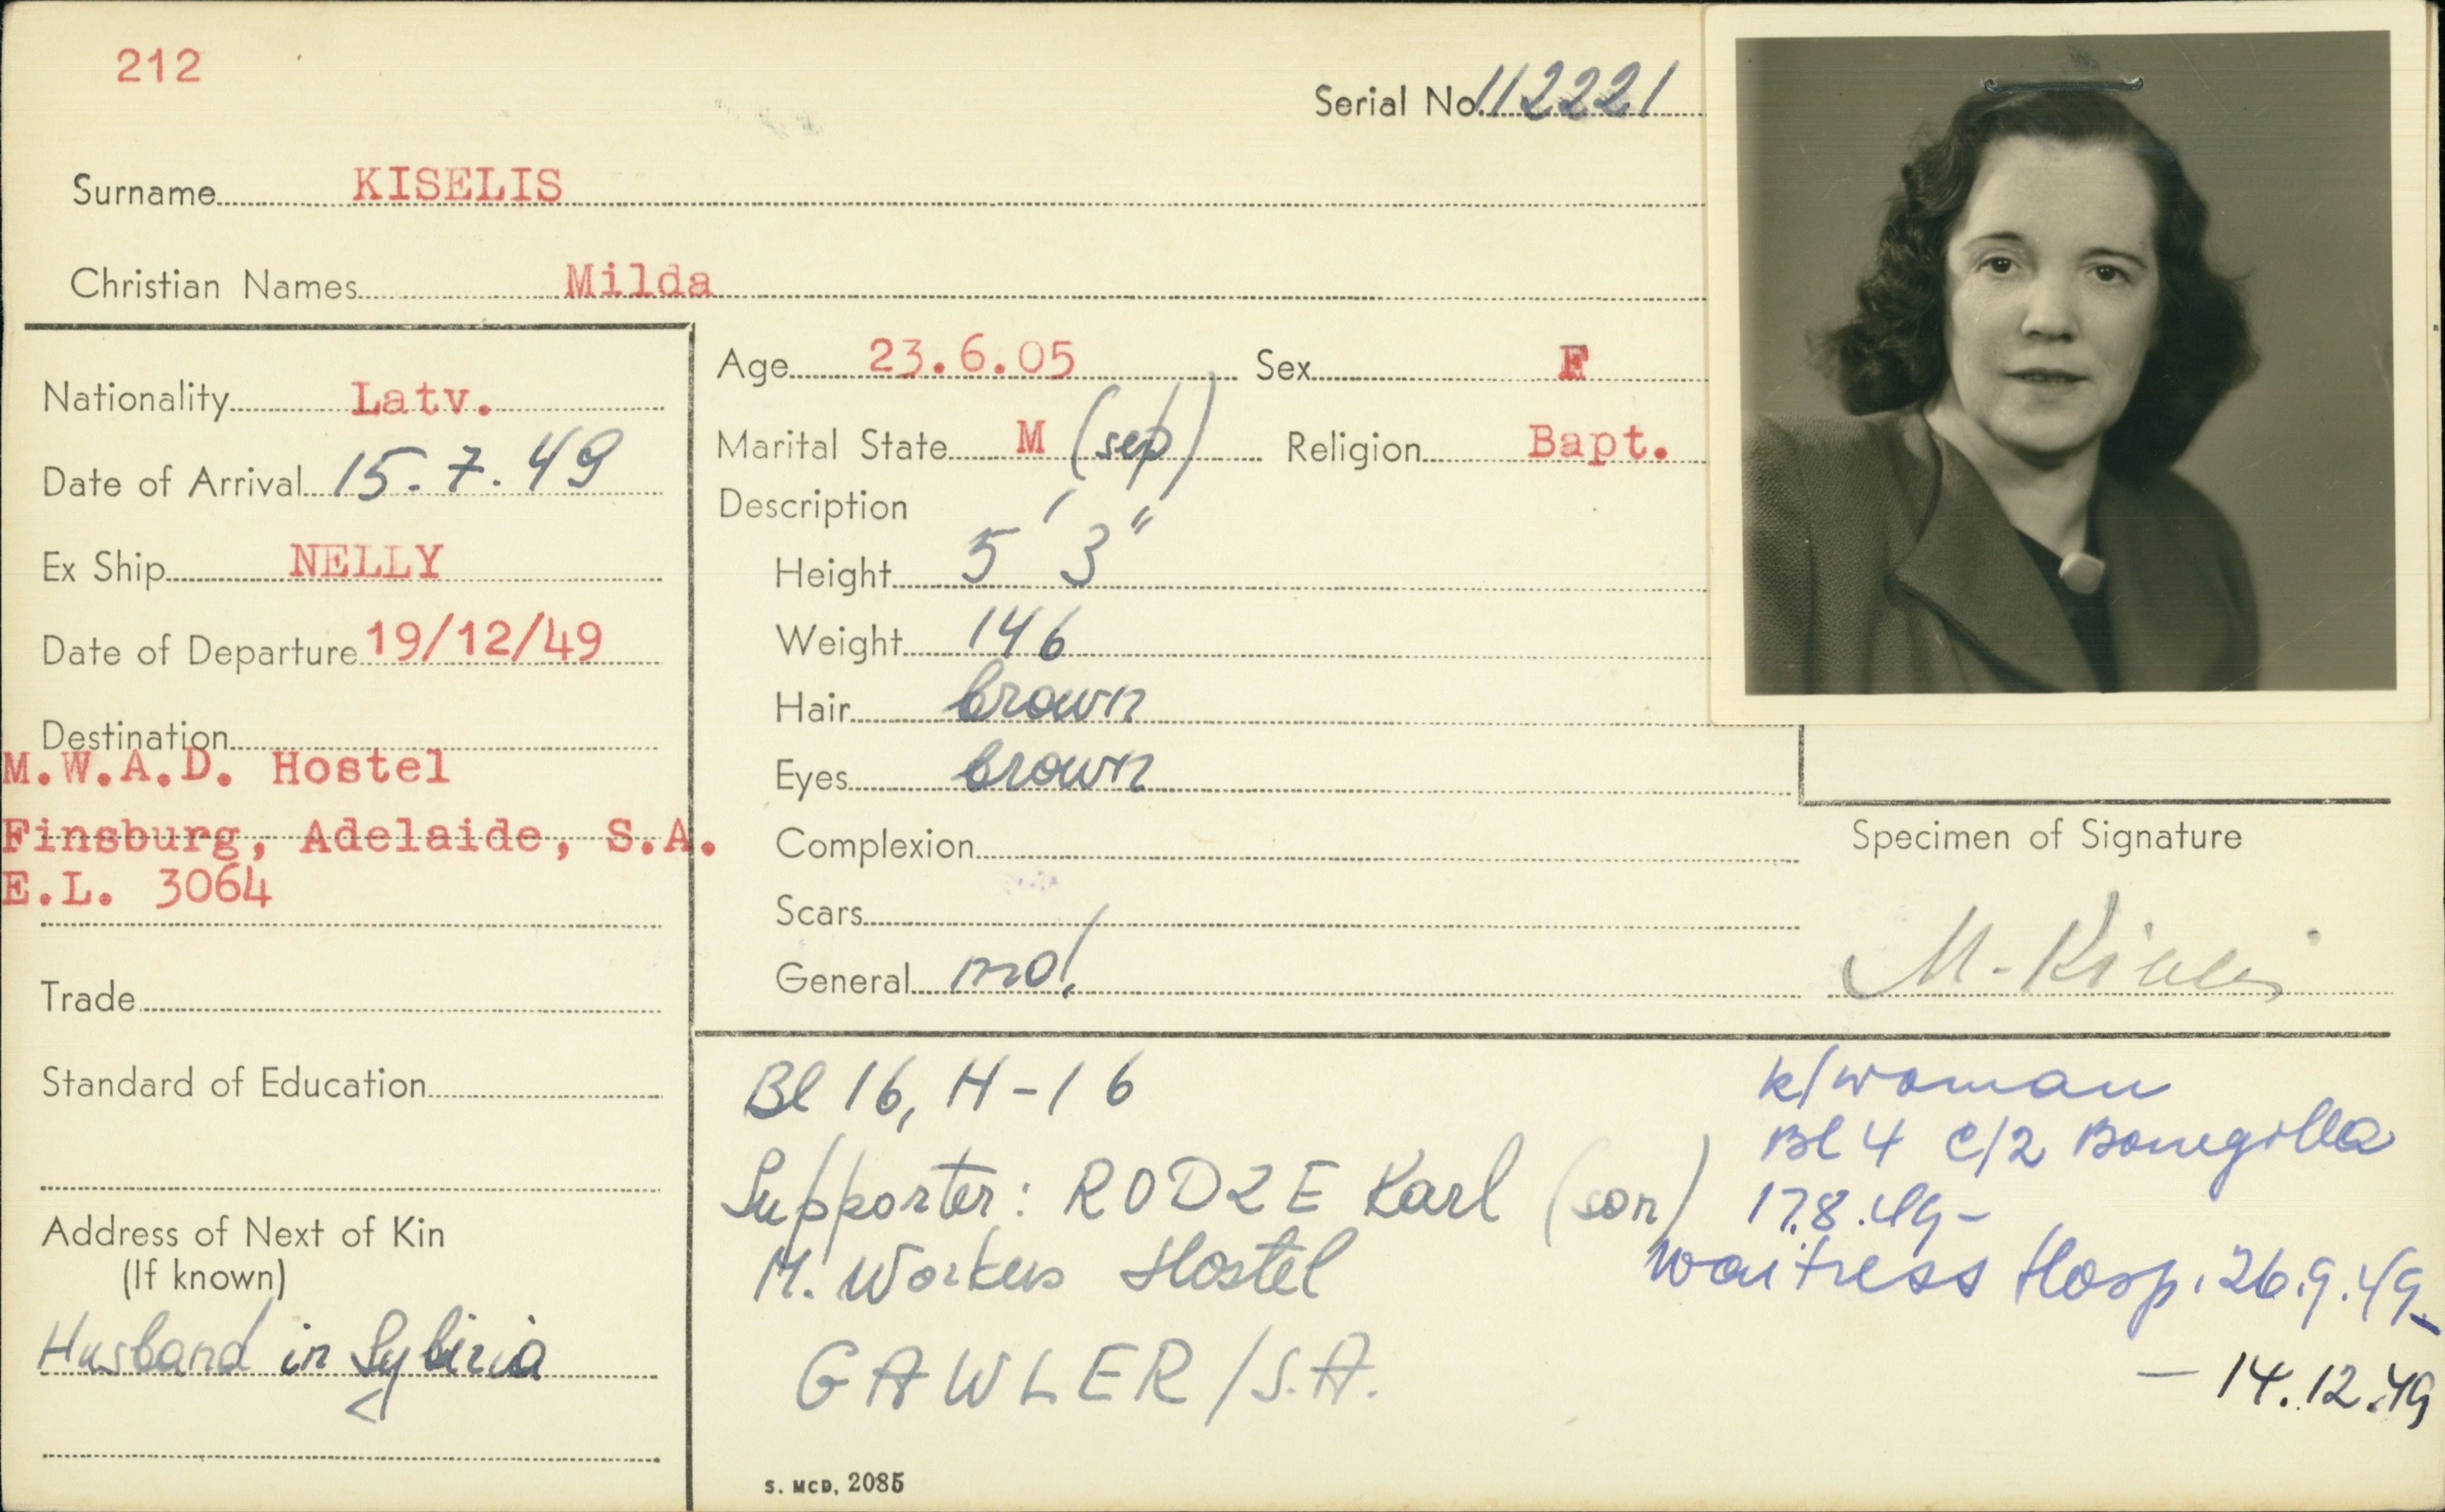 212
Serial No. 112221
Surname KISELIS
Christian Names Milda
Nationality Latv.
Date of Arrival 15.7.49
Ex Ship NELLY
Date of Departure 19/12/49
Destination
M.W.A.D. Hostel
Finsburg, Adelaide, S.A.
E.L. 3064
Trade
Standard of Education
Address of Next of Kin
(If known)
Husband in Sybiria
Age 23.6.05 Sex F
Marital State M (sep) Religion Bapt.
Description
Height 5' 3"
Weight 146
Hair brown
Eyes brown
Complexion
Scars
General
Specimen of Signature
M. Kiselis
Bl 16, H-16
Supporter: RODZE Karl (son)
M. Workers Hostel
GAWLER/S.A.
k/woman
Bl 4 C/2 Bonegilla
17.8.49-
Waitress Hosp. 26.9.49-
- 14.12.49
S. MCD. 2085